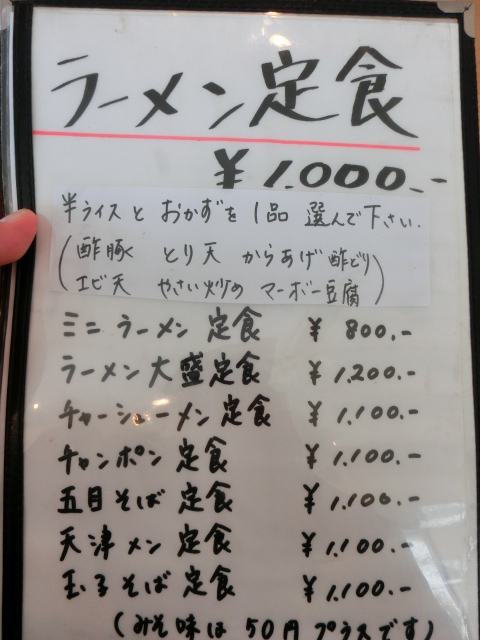 ラーメン定食
¥1,000.-
半ライスと おかずを 1品 選んで下さい.
(酢豚 とり天 からあげ 酢どり
エビ天 やさい炒め マーボー豆腐)
ミニラーメン定食 ¥800.-
ラーメン大盛定食 ¥1,200.-
チャーシューメン定食 ¥1,100.-
チャンポン定食 ¥1,100.-
五目そば定食 ¥1,100.-
天津メン定食 ¥1,100.-
玉子そば定食 ¥1,100.-
(みそ味は50円プラスです)